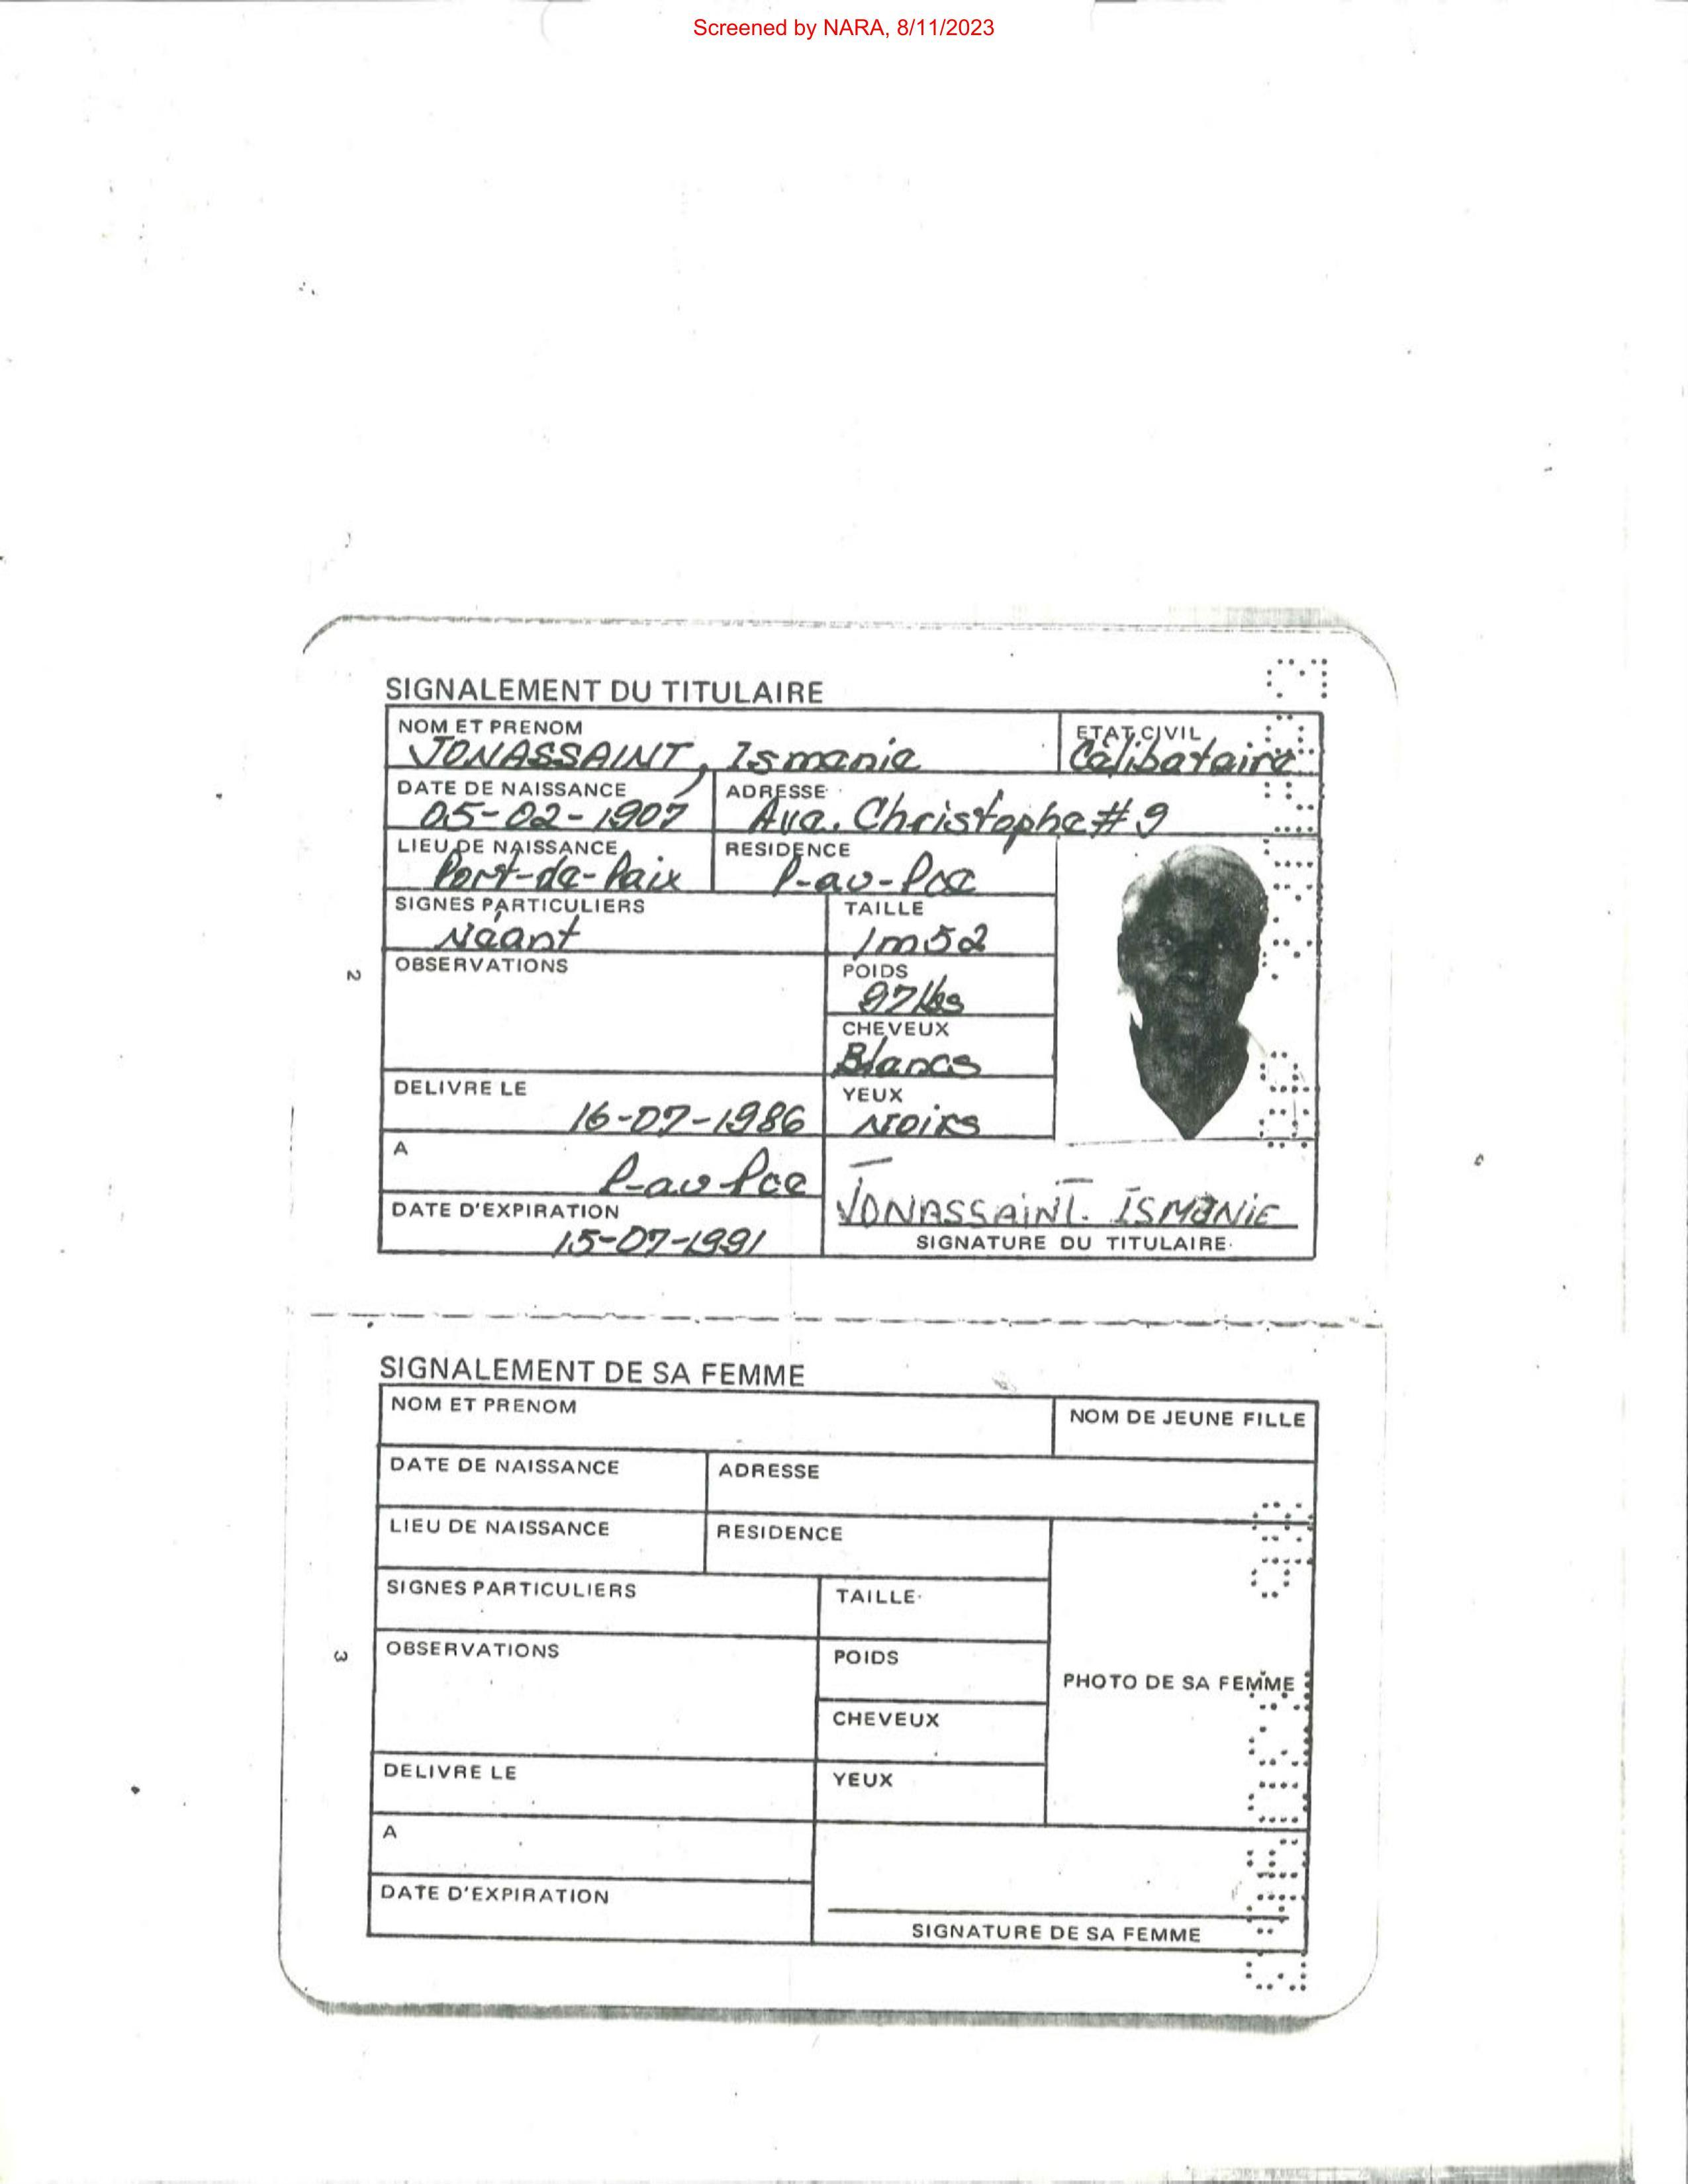 Screened by NARA, 8/11/2023
SIGNALEMENT DU TITULAIRE
NOM ET PRENOM
JONASSAINT, Ismanie
ETAT CIVIL
Célibataire
DATE DE NAISSANCE
05-02-1907
ADRESSE
Ave. Christophe # 9
LIEU DE NAISSANCE
Port-de-Paix
RESIDENCE
P-au-Pce
SIGNES PARTICULIERS
Néant
TAILLE
1m52
OBSERVATIONS
POIDS
97 lbs
CHEVEUX
Blancs
DELIVRE LE
16-07-1986
YEUX
Noirs
A
P-au Pce
DATE D'EXPIRATION
15-07-1991
JONASSAINT. ISMANIE
SIGNATURE DU TITULAIRE
2
SIGNALEMENT DE SA FEMME
NOM ET PRENOM
NOM DE JEUNE FILLE
DATE DE NAISSANCE
ADRESSE
LIEU DE NAISSANCE
RESIDENCE
SIGNES PARTICULIERS
TAILLE
OBSERVATIONS
POIDS
PHOTO DE SA FEMME
CHEVEUX
DELIVRE LE
YEUX
A
DATE D'EXPIRATION
SIGNATURE DE SA FEMME
3